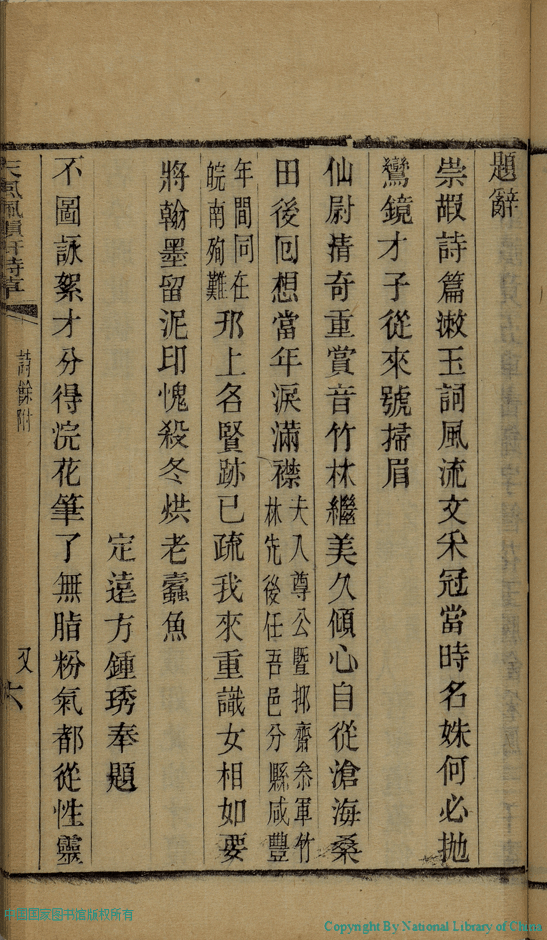 題辭
崇嘏詩篇漱玉詞風流文采冠當時名姝何必拋
鸞鏡才子從來號掃眉
仙尉清奇重賞音竹林繼美久傾心自從滄海桑
田後回想當年淚滿襟
夫人尊公暨挪齋叅軍竹
林先後任吾邑分縣咸豐
年間同在
皖南殉難
邗上名賢跡已疏我來重識女相如要
將翰墨留泥印愧殺冬烘老蠹魚
定遠方鍾琇奉題
不圖詠絮才分得浣花筆了無脂粉氣都從性靈
天風佩韻軒詩草
詩餘附
又六
中国国家图书馆版权所有
Copyright By National Library of China